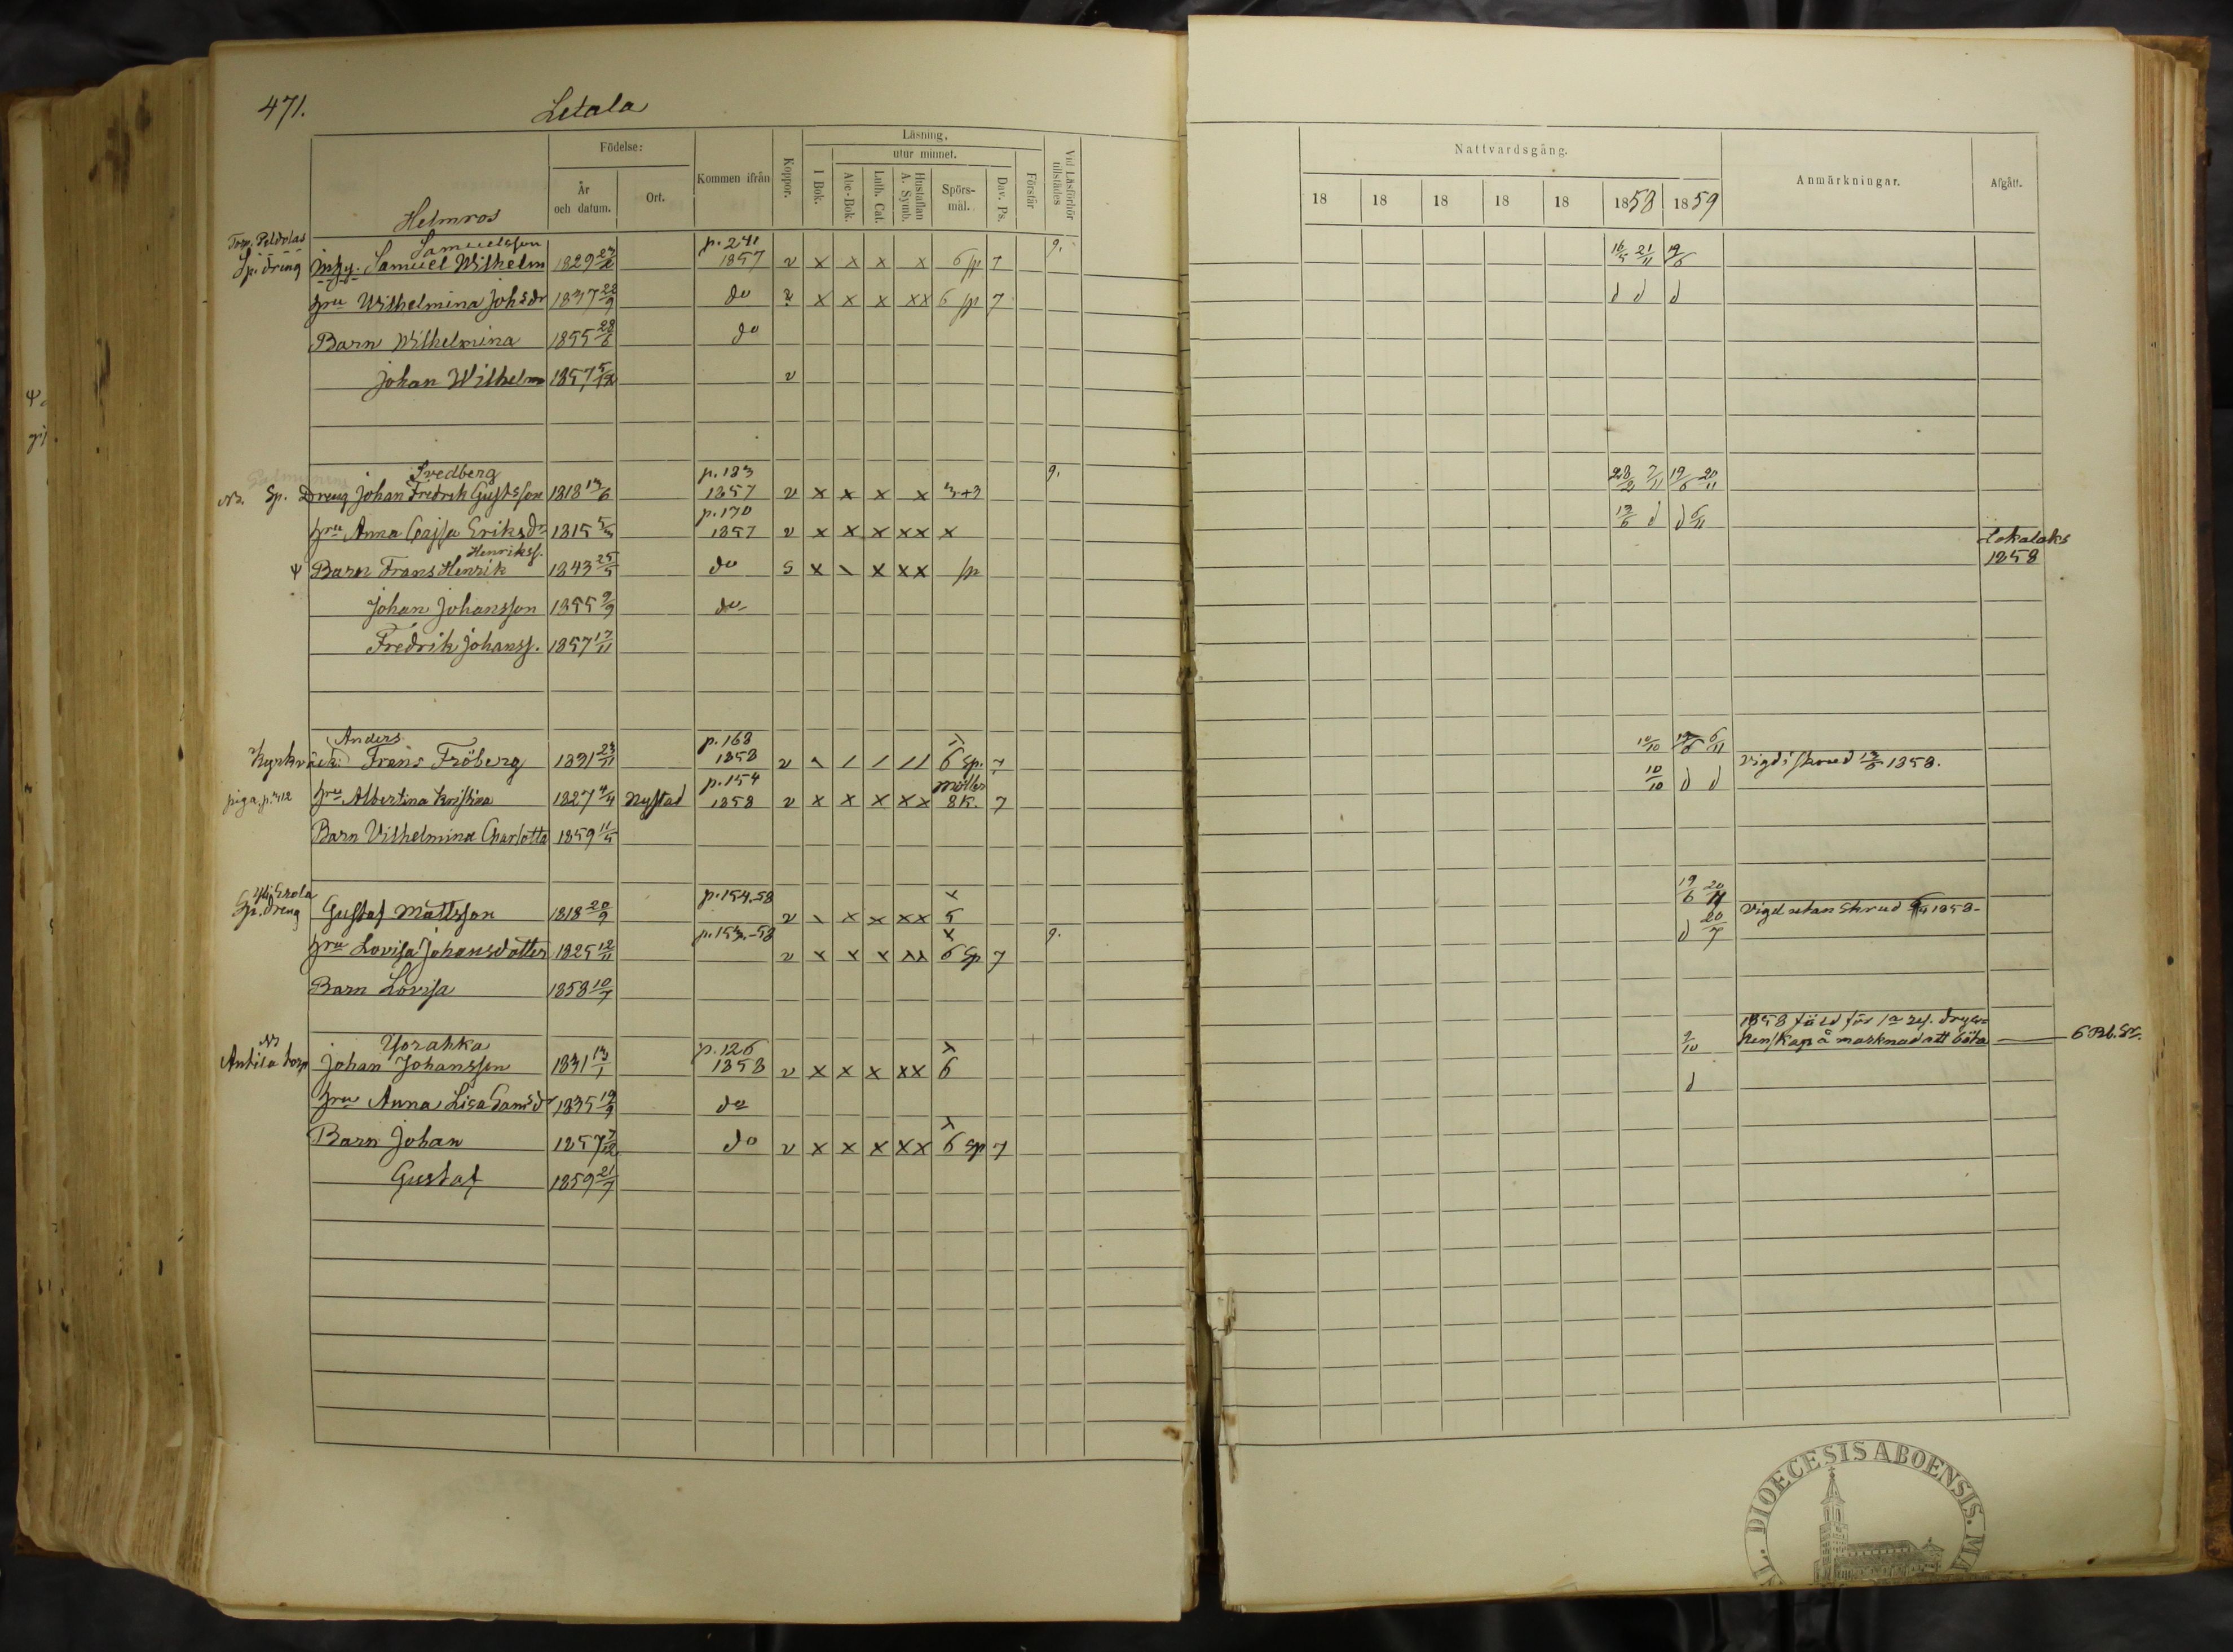 471.
Letala
Födelse:
År och datum.
Ort.
Kommen ifrån
Koppor.
Läsning,
utur minnet.
I Bok.
Abc-Bok.
Luth. Cat.
Hustaflan A. Symb.
Spörsmål.
Dav. Ps.
Förstår
Vid Läsförhör tillstädes
Nattvardsgång.
18 18 18 18 18 1858 1859
Anmärkningar.
Afgått.
Helmros
Samuelsson
Sp. dreng Samuel Wilhelm 1829 p. 241 1857 v x x x x 6 sp 7 g. 21/11 19/6
hru Wilhelmina Johsdr 1837 28/9 do x x x xx 6 sp 7 d d d
Barn Wilhelmina 1855 28/6 do
Johan Wilhelm 1857 5/12 v
Svedberg
Sp. Dreng Johan Fredrik Gustsson 1818 13/6 p. 183 1857 v x x x x 3+3 g. 7/11 19/6 20/11
hru Anna Cajsa Eriksdr 1815 5/5 p. 170 1857 v x x x xx x 13/6 d d 6/11
Henrikss.
Ψ Barn Frans Henrik 1843 25/5 do s x \ x xx sp Lokalaks 1858
Johan Johansson 1855 9/9 do
Fredrik Johanss. 1857 17/11
Anders
Frans Fröberg 1831 23/11 p. 168 1858 v \ / / // 6 sp. 7 10/10 6/11
piga, p. 412 hru Albertina Kristina 1827 4/4 Nystad p. 154 1858 v x x x xx 8 K. 7 10/10 d d Vigd i skrud 13/6 1858.
Barn Vilhelmina Charlotta 1859 11/5
Sp. dreng Gustaf Mattsson 1818 20/9 p. 154.58 v \ x x xx x 5 19/6 20/11
hru Lovisa Johansdotter 1825 12/11 p. 153.-58 v x x x xx x 6 Sp 7 g. d 20/7 Vigd utan skrud 1858-
Barn Lovisa 1858 10/7
Yorahka
Antila torp Johan Johansson 1831 13/1 p. 126 1858 v x x x xx 6 9/10 1858 fäld för 1a res. dryckenskap å marknad att böta 6 Rb. Sr.
hru Anna Lisa Samsdr 1835 19/9 do d
Barn Johan 1857 7/12 do v x x x xx 6 sp 7
Gustaf 1859 21/7
DIOECESIS ABOENSIS. MA